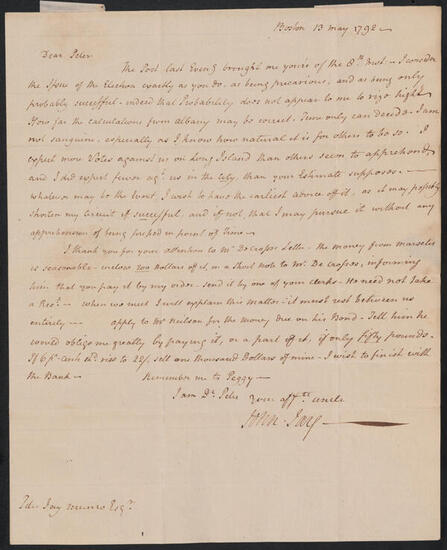 Boston 13 May 1792 —
Dear Peter
The Post last Eveng brought me yours of the 8th Inst. — I consider
the Issue of the Election exactly as you do, as being precarious, and as being only
probably successful — indeed that Probability does not appear to me to rise high
How far the calculations from Albany may be correct, Time only can decide — I am
not sanguine, especially as I know how natural it is for others to be so. I
expect more Votes against us on Long Island than others seem to apprehend,
and I did expect fewer agt. us in the City, than your Estimate supposes. —
whatever may be the Event, I wish to have the earliest advice of it, as it may possibly
shorten my Circuit if successful, and if not that I may pursue it without any
apprehension of being pressed in point of Time —
I thank you for your attention to Mr. De Crosses Letter. the money from Marselis
is seasonable — enclose 200 Dollars of it, in a short note to Mr. De Crosses, informing
him that you pay it by my order — send it by one of your clerks. He need not take
a Rect. — when we meet I will explain this Matter — it must rest between us
entirely — apply to Mr Neilson for the money due on his Bond — Tell him he
would oblige me greatly by paying it, or a part of it, if only fifty pounds.
If 6 pr cents shd. rise to 22/. sell one thousand Dollars of mine — I wish to finish with
the Bank — Remember me to Peggy —
I am Dr. Peter your afft. uncle
John Jay
Peter Jay Munro Esqr.